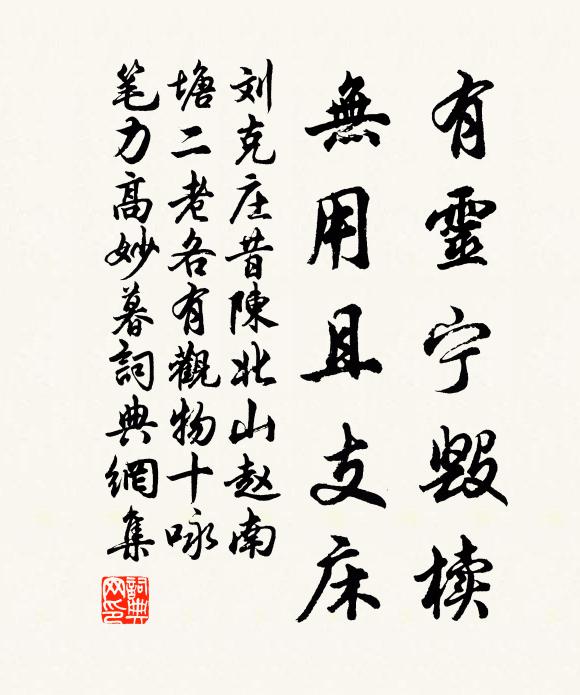 有靈宁毁椟
無用且支床
刘克庄昔陳北山赵南
塘二老各有觀物十咏
笔力高妙暮詞典網集
詞典网印